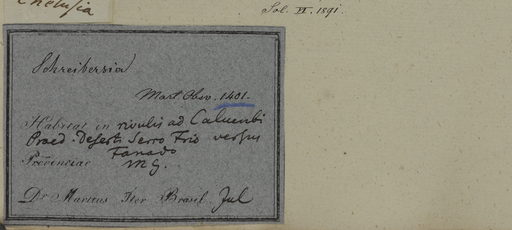 Sol. VI. 1891.
Schreibersia
Mart. Obsv. 1401.
Habitat in rivulis ad Calumbi
Praed. Deserti Serro Frio versus
Fanado
Provinciae M G.
Dr. Martius Iter Brasil. Jul